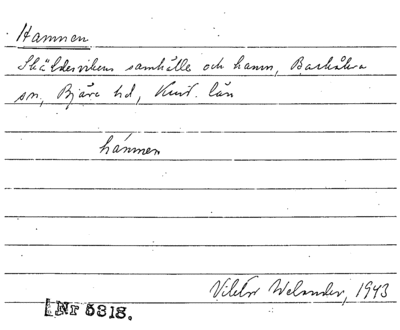 Hamnen
Skäldervikens samhälle och hamn, Barkåkra
sn, Bjäre hd, Krist. län
hámnen
Viktor Welander, 1943
Nr 5318.